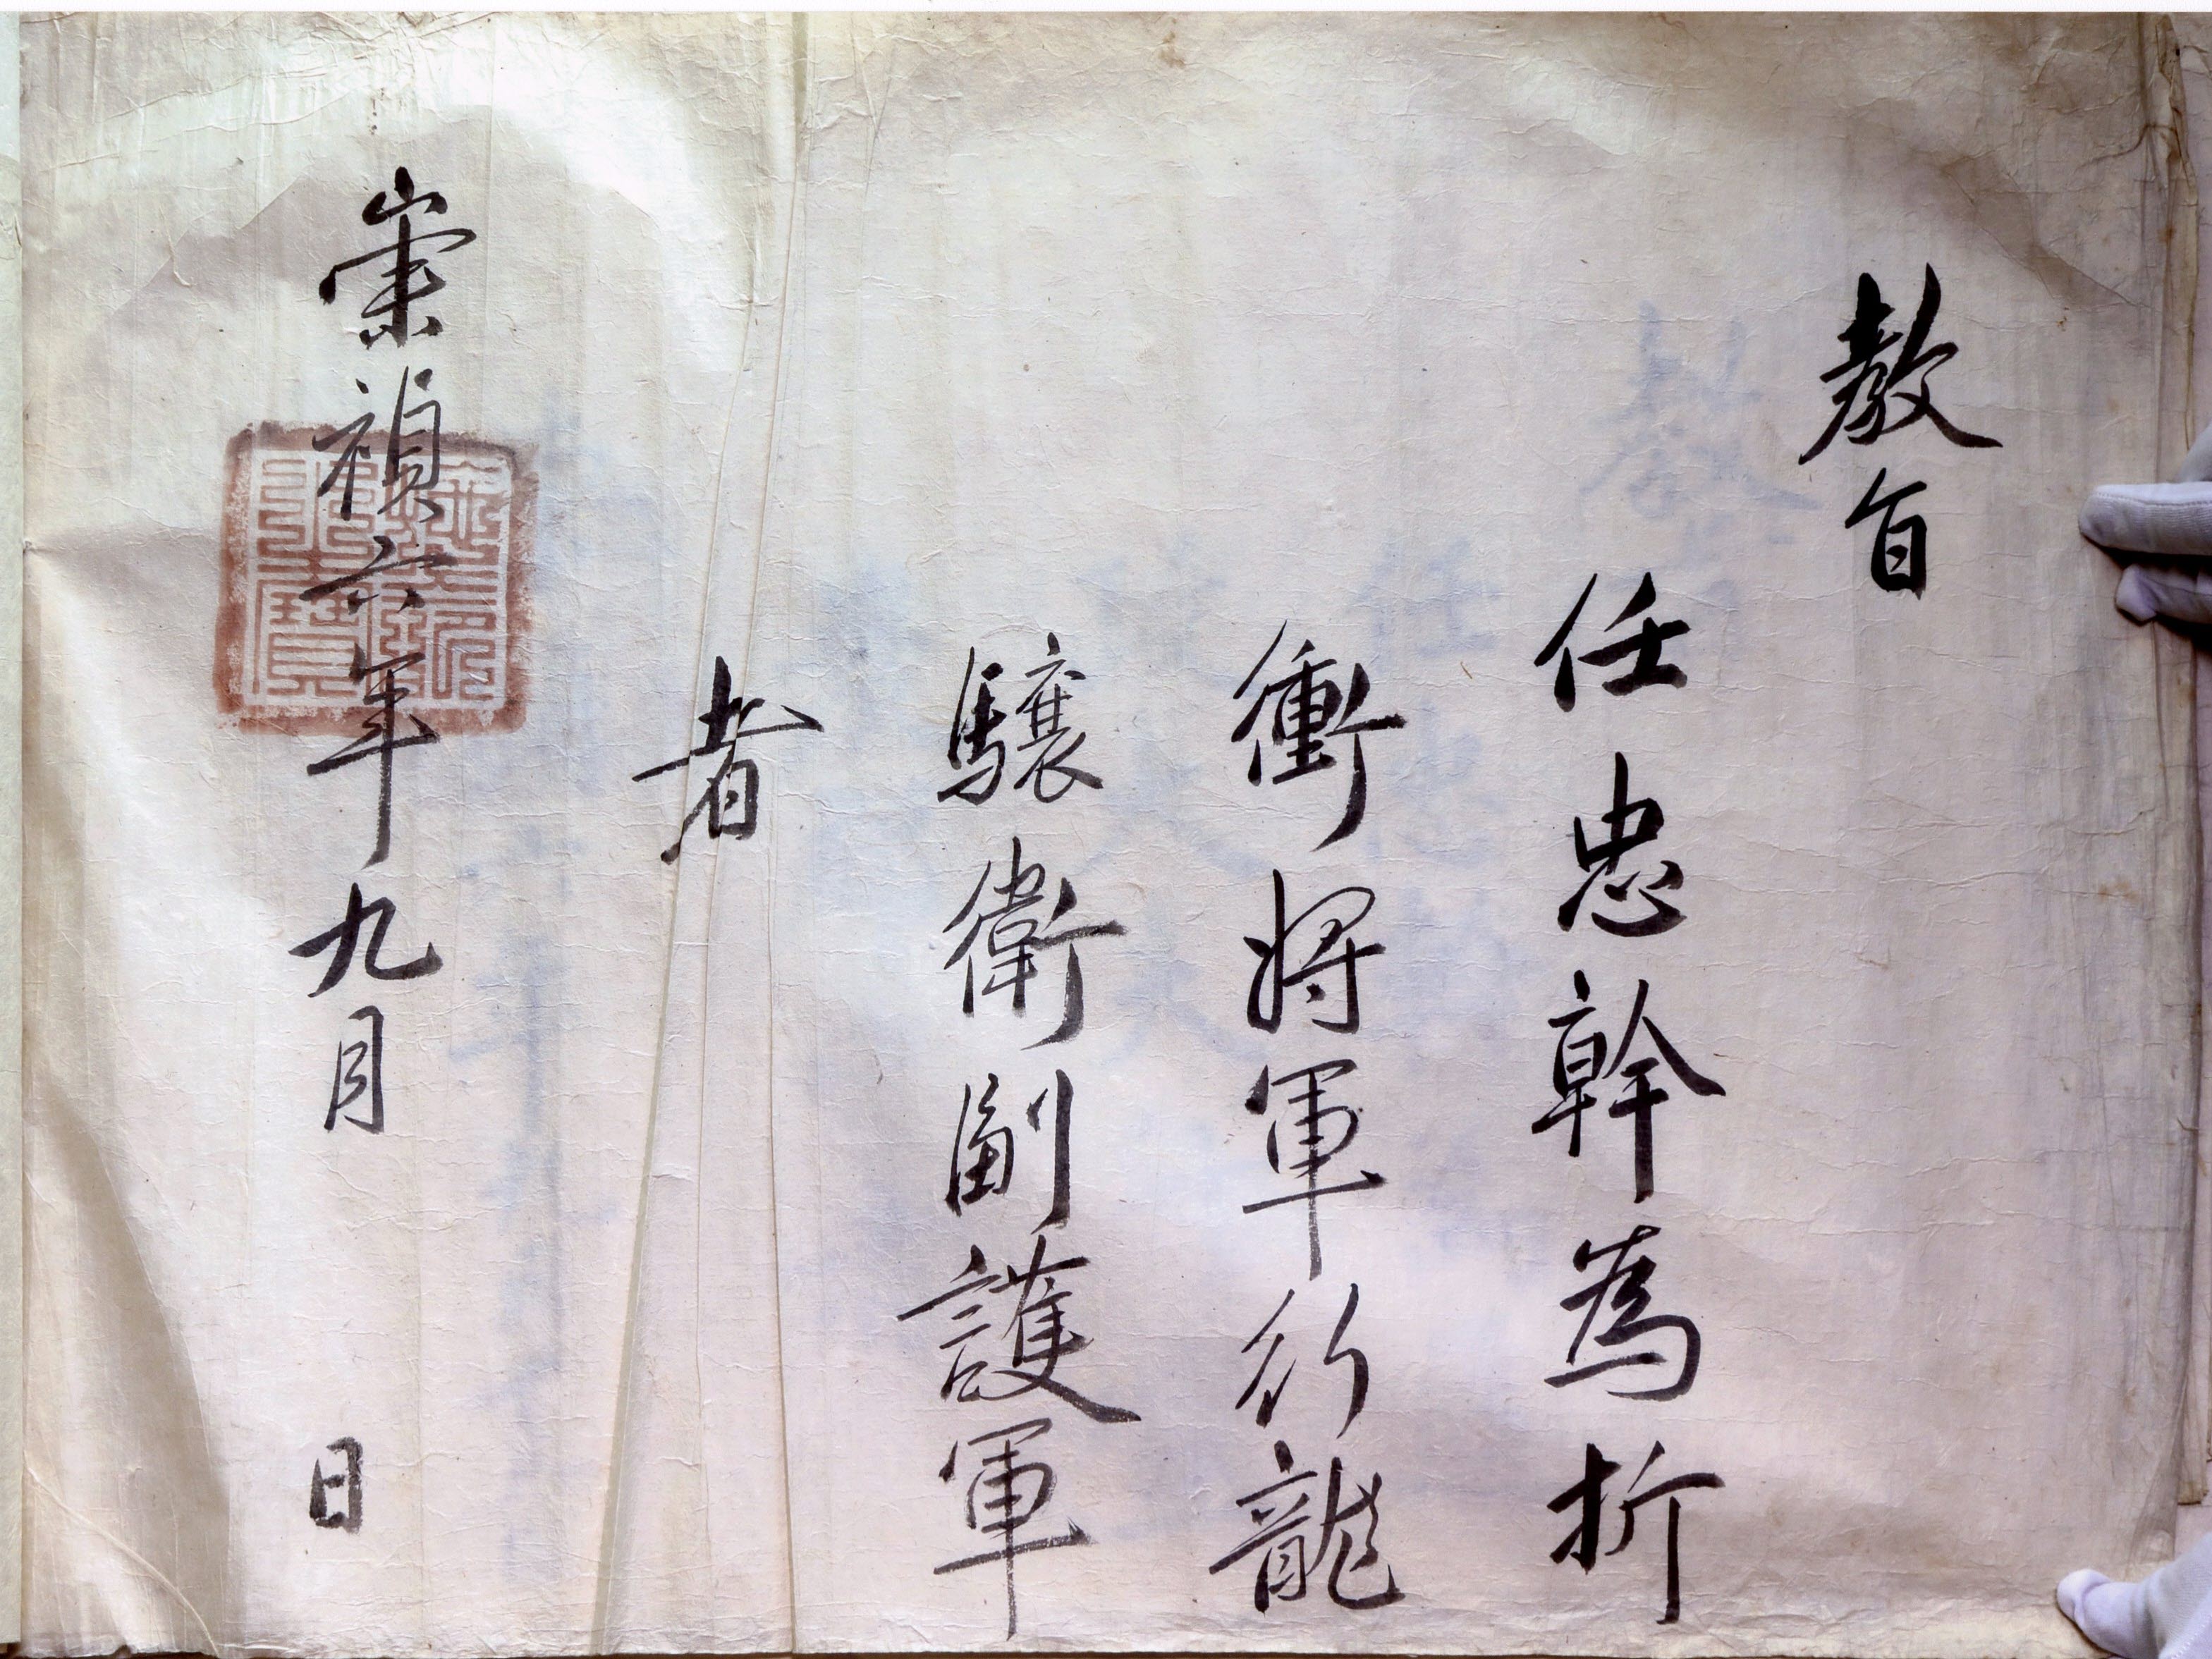 教旨
任忠幹為折
衝將軍行龍
驤衛副護軍
者
崇禎六年九月 日